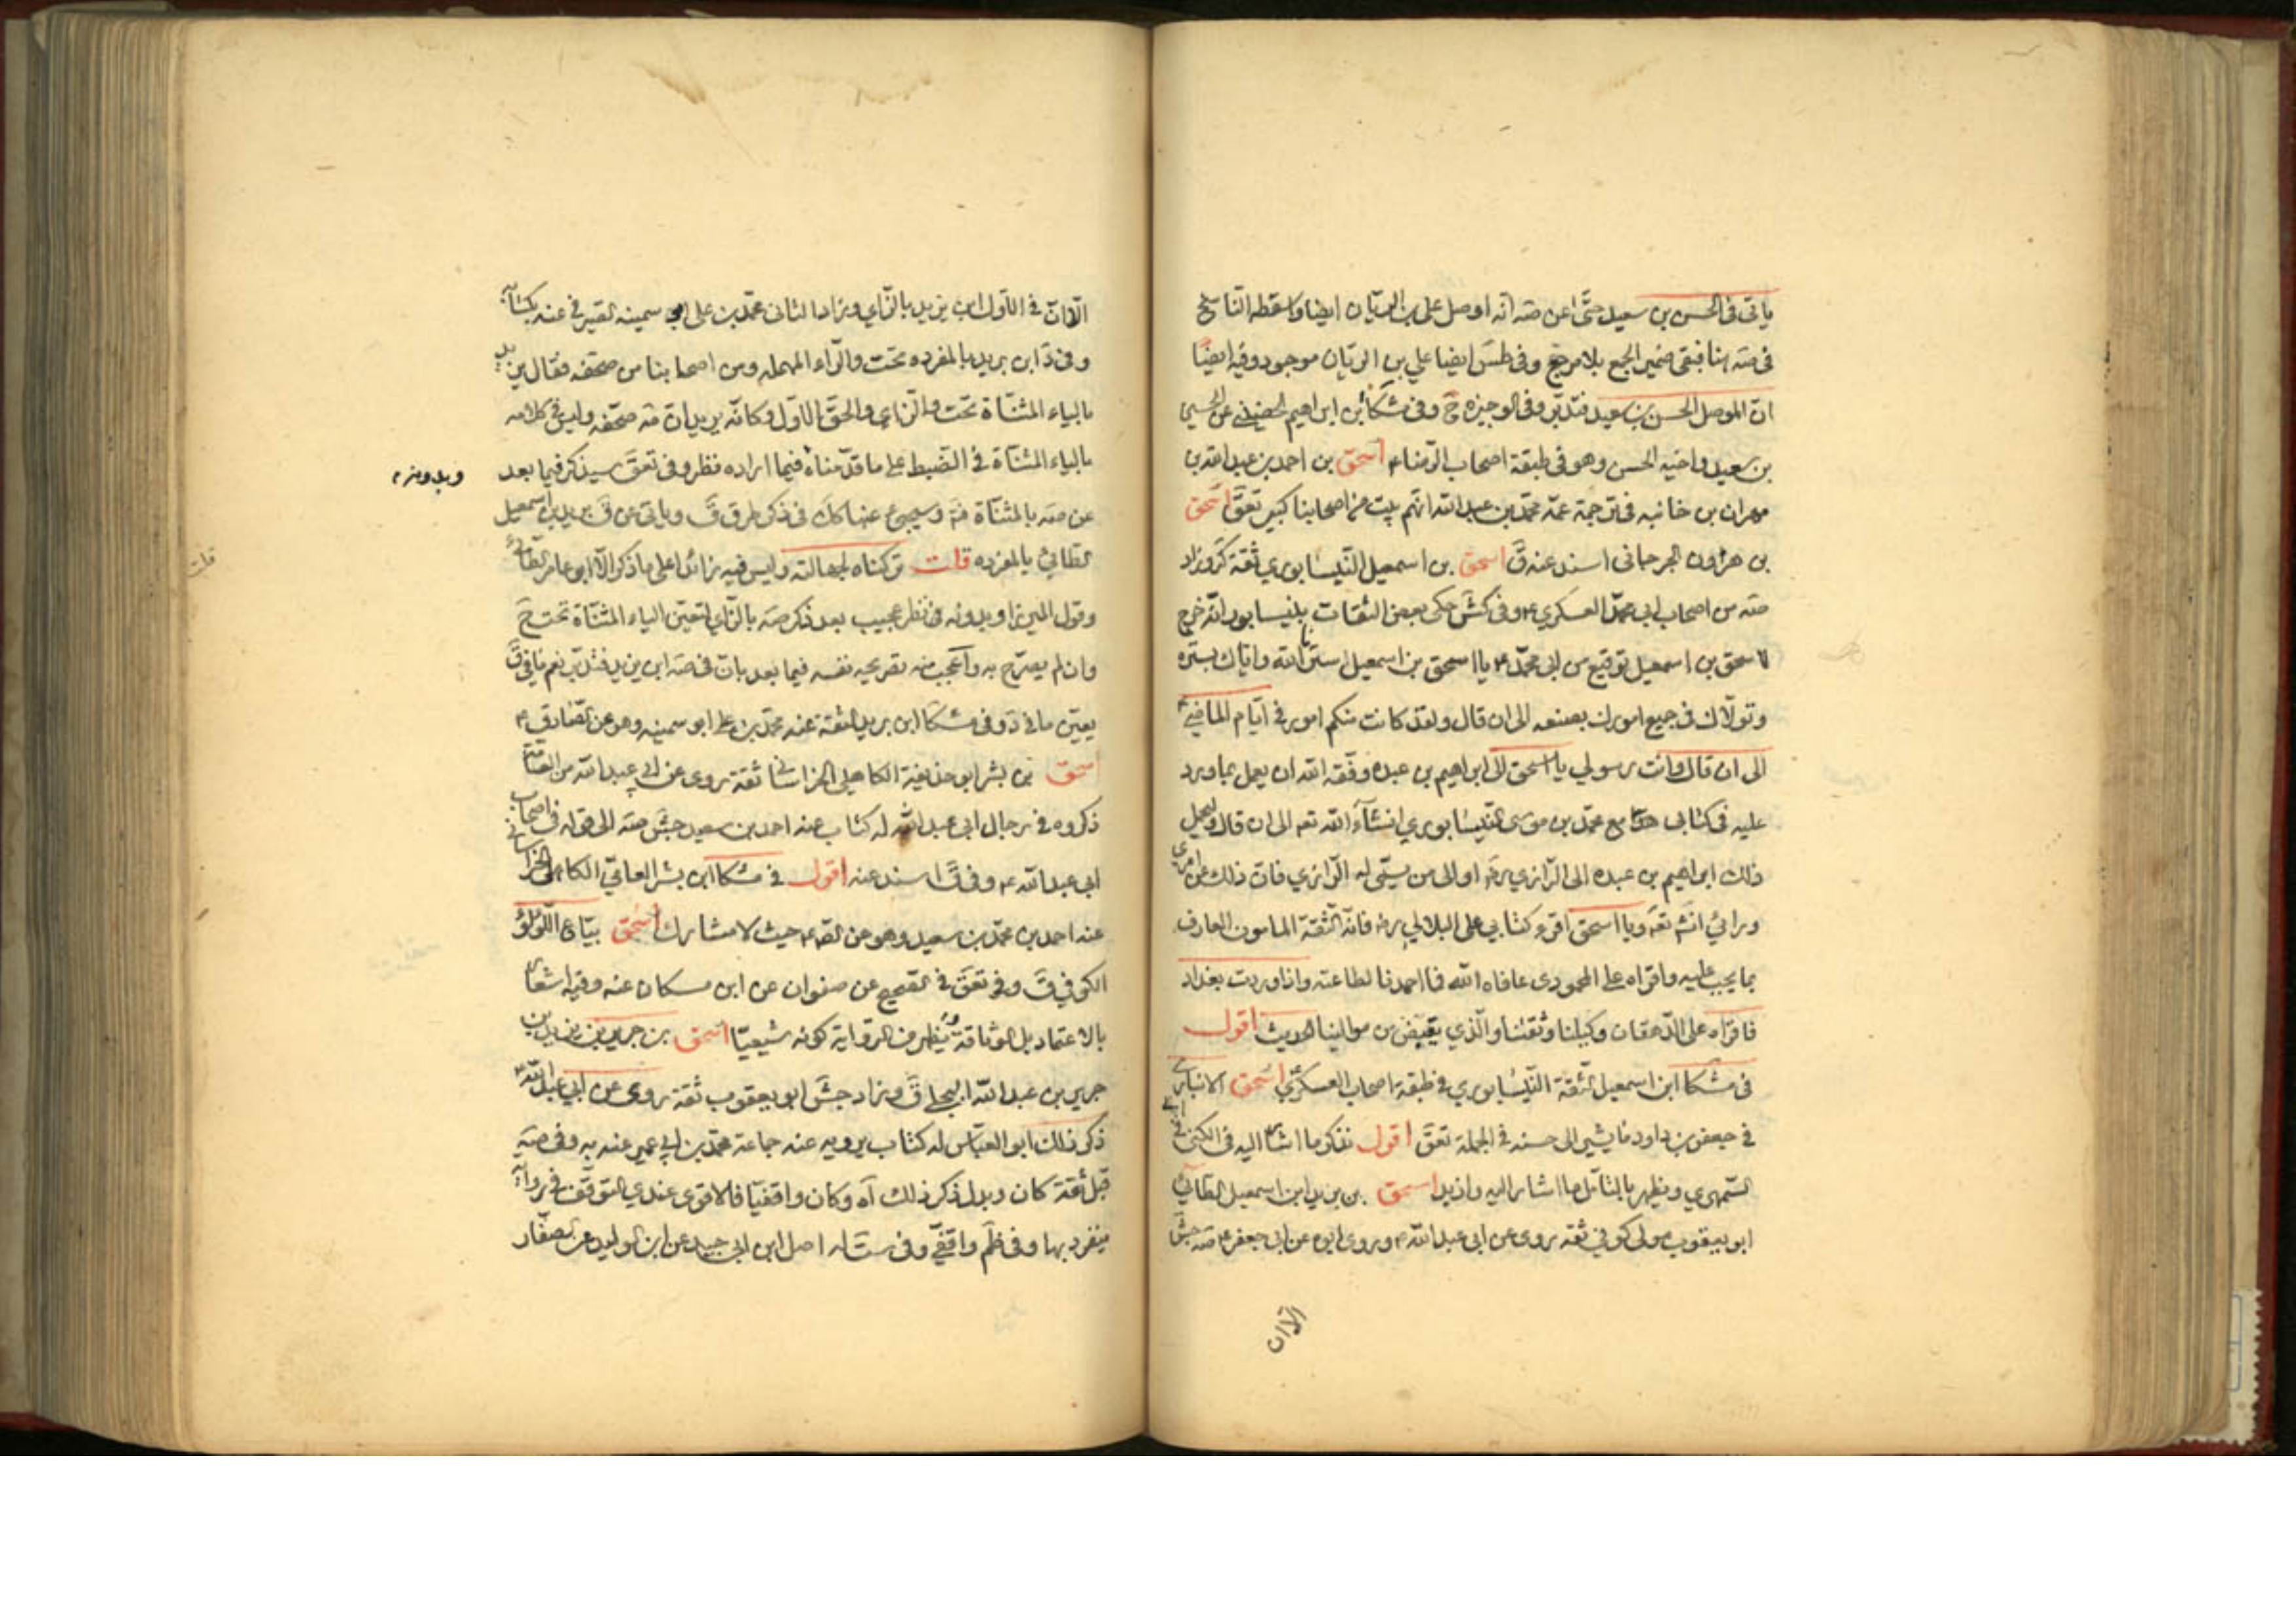 ياتى فى الحسن بن سعيد حتى عن صه انه اوصل على بن الريان ايضا واسقطه الناسخ
فى صه هنا فبقى ضمير الجمع بلا مرجع وفى طس ايضا علي بن الريان موجود وفيه ايضا
ان الموصل الحسن بن سعيد فتدبر وفى الوجيزه ح وفى مشكا ابن ابراهيم الحضينى عن الحسين
بن سعيد واخيه الحسن وهو فى طبقة اصحاب الرضا ع اسحق بن احمد بن عبد الله بن
مهران بن خانبه فى ترجمة عمه محمد بن عبد الله انهم بيت من اصحابنا كبير تعق اسحق
بن هرون الجرجانى اسند عنه ق اسحق بن اسمعيل النيسابوري ثقة كر وزاد
صه من اصحاب ابى محمد العسكري ع وفى كش حكى بعض الثقات بنيسابور انه خرج
لاسحق بن اسمعيل توقيع من ابى محمد ع يا اسحق بن اسمعيل سترنا الله واياك بستره
وتولاك فى جميع امورك بصنعه الى ان قال ولقد كانت منكم امور فى ايام الماضى ع
الى ان قال وانت رسولي يا اسحق الى ابراهيم بن عبده وفقه الله ان يعمل بما ورد
عليه فى كتابى مع محمد بن موسى النيسابوري انشاء الله تعه الى ان قال وليحمل
ذلك ابراهيم بن عبده الى الرازي ره او الى من يسمى له الرازي فان ذلك عن امرى
ورائي انش تعه ويا اسحق اقرء كتابي على البلالي ره فانه الثقة المامون العارف
بما يجب عليه واقراه على المحمودى عافاه الله فما احمدنا لطاعته واذا وردت بغداد
فاقراه على الدهقان وكيلنا وثقتنا والذي يقبض من موالينا الحديث اقول
فى مشكا ابن اسمعيل الثقة النيسابوري فى طبقة اصحاب العسكري اسحق الانبارى
فى جعفر بن داود ما يشير الى حسنه فى الجملة تعق اقول نذكر ما اشار اليه فى الكنى فى
السمهري ويظهر بالتامل ما اشار اليه وازيد اسحق بن بريد ابن اسمعيل الطائي
ابو يعقوب مولى كوفي ثقه روى عن ابى عبد الله ع وروى ابوه عن ابى جعفر ع صه جش
الا ان
الا ان فى الاول ابن يزيد بالزاي وزاد الثانى محمد بن على ابو سمينه الصيرفى عنه بكتابه
وفى د ابن بريد بالمفرده تحت والراء المهمله ومن اصحابنا من صحفه فقال يزيد
بالياء المثناة تحت والزاى والحق الاول وكانه يريد ان صه صحفه وليس فى كلامه
بالياء المثناة فى الضبط على ما قدمناه فيما اراده نظر وفى تعق سيذكر فيما بعد
عن صه بالمثناة وسيجئ عنها كك فى ذكر طرق ق وياتى عن ق بريد بن اسمعيل
الطائي بالمفرده قلت تركناه لجهالته وليس فيه زائدا على ما ذكر الا ابو عامر الطائى
وقول الميرزا وبدونه نظر عجيب بعد ذكر صه بالزاي لتعين الياء المثناة تحت ح
وان لم يصرح به واعجب منه تصريحه نفسه فيما بعد بان فى صه ابن يزيد فتدبر نعم ما فى ق
يعين ما فى د وفى مشكا ابن بريد الثقة عنه محمد بن على ابو سمينه وهو عن الصادق ع
اسحق بن بشر ابو حذيفة الكاهلى الخراسانى ثقة روى عن ابى عبد الله من العامة
ذكروه فى رجال ابى عبد الله له كتاب عنه احمد بن سعيد جش صه الى قوله فى اصحاب
ابى عبد الله ع وفى ق اسند عنه اقول فى مشكا ابن بشر العامي الكاهلى الخراسانى
عنه احمد بن محمد بن سعيد وهو عن الصادق ع حيث لا مشارك اسحق بياع اللؤلؤ
الكوفي ق وفى تعق فى الصحيح عن صفوان عن ابن مسكان عنه وفيه اشعار
بالاعتماد بل الوثاقة ويظهر من الرواية كونه شيعيا اسحق بن جرير بن يزيد بن
جرير بن عبد الله البجلى ق وزاد جش ابو يعقوب ثقة روى عن ابى عبد الله ع
ذكر ذلك ابو العباس له كتاب يرويه عنه جماعة محمد بن ابى عمير عنه به وفى صه
قبل ثقة كان وبدل ذكر ذلك آه وكان واقفيا فالاقوى عندي التوقف فى رواية
ينفرد بها وفى ظم واقفي وفى ست له اصل ابن ابى جيد عن ابن الوليد عن الصفار
قلت